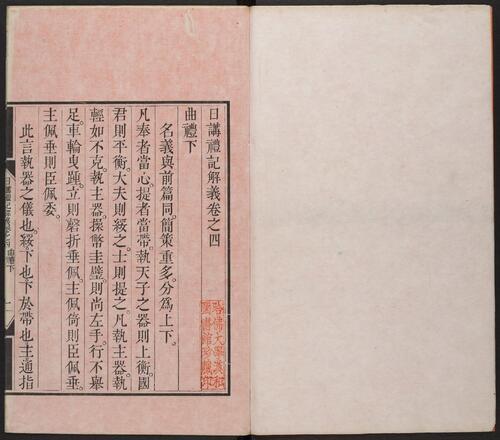 日講禮記解義卷之四
曲禮下
名義與前篇同。簡策重多。分爲上下。
凡奉者當心。提者當帶。執天子之器則上衡。國
君則平衡。大夫則綏之。士則提之。凡執主器。執
輕如不克。執主器。操幣圭璧。則尚左手。行不舉
足。車輪曳踵。立則磬折垂佩。主佩倚則臣佩垂。
主佩垂則臣佩委。
此言執器之儀也。綏。下也。下於帶也。主。通指
哈佛大學漢和
圖書館珍藏印
日講禮記解義 卷之四 曲禮下 一